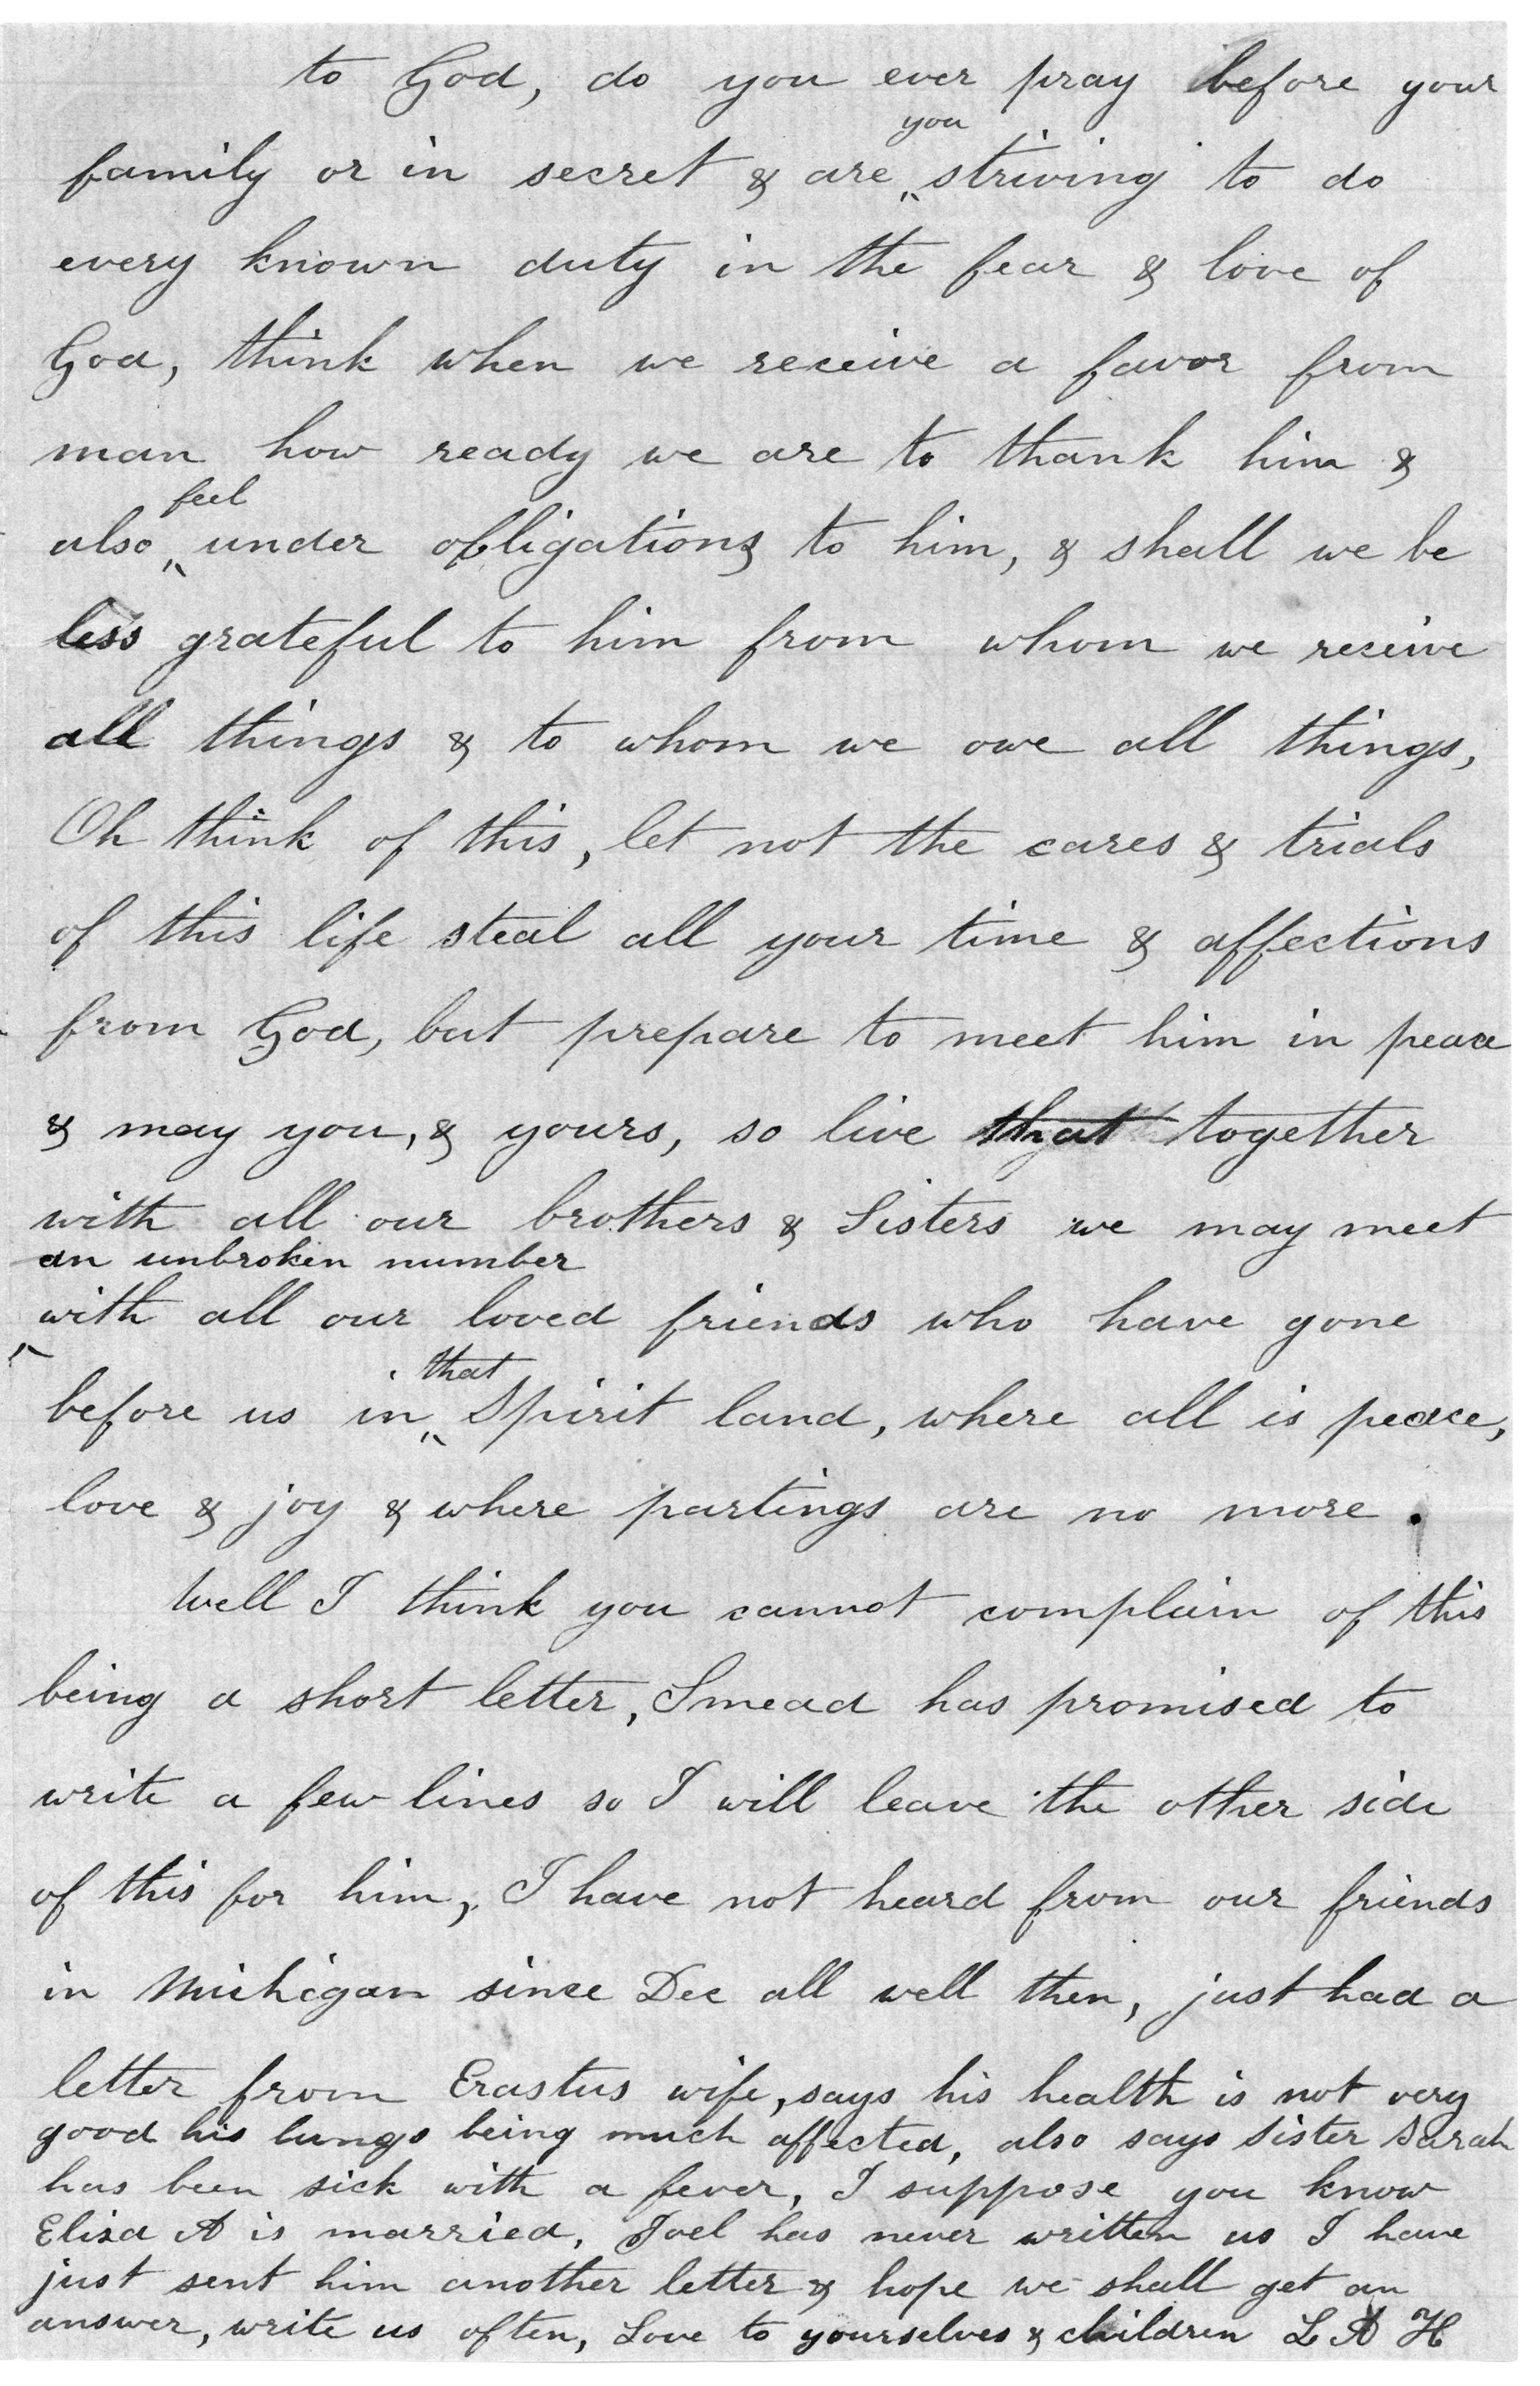 to God, do you ever pray before your
you
family or in secret & are striving to do
every known duty in the fear & love of
God, think when we receive a favor from
man how ready we are to thank him &
feel
also under obligations to him, & shall we be
less grateful to him from whom we receive
all things & to whom we owe all things,
Oh think of this, let not the cares & trials
of this life steal all your time & affections
from God, but prepare to meet him in peace
& may you, & yours, so live that together
with all our brothers & Sisters we may meet
an unbroken number
with all our loved friends who have gone
that
before us in Spirit land, where all is peace,
love & joy & where partings are no more.
Well I think you cannot complain of this
being a short letter, Smead has promised to
write a few lines so I will leave the other side
of this for him, I have not heard from our friends
in Michigan since Dec all well then, just had a
letter from Erastus wife, says his health is not very
good his lungs being much affected, also says sister Sarah
has been sick with a fever, I suppose you know
Eliza A is married, Joel has never written us I have
just sent him another letter & hope we shall get an
answer, write us often, Love to yourselves & children L A H